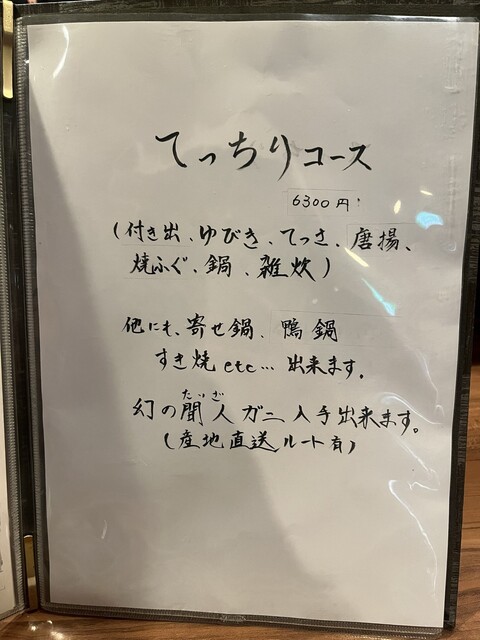 てっちりコース
6300円
(付き出、ゆびき、てっさ、唐揚、
焼ふぐ、鍋、雑炊)
他にも、寄せ鍋、鴨鍋
すき焼etc…出来ます。
たいざ
幻の間人ガニ入手出来ます。
(産地直送ルート有)